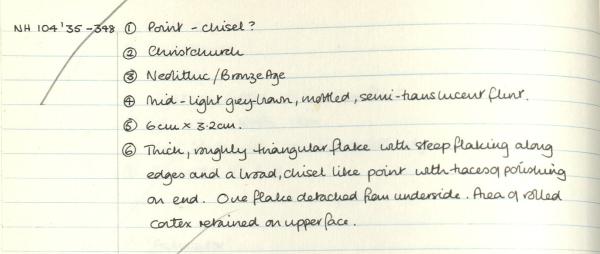 NH 104'35-348 ① Point - chisel?
② Christchurch
③ Neolithic/Bronze Age
④ Mid-light grey-brown, mottled, semi-translucent flint.
⑤ 6cm × 3.2cm.
⑥ Thick, roughly triangular flake with steep flaking along
edges and a broad, chisel like point with traces of polishing
on end. One flake detached from underside. Area of rolled
cortex retained on upper face.